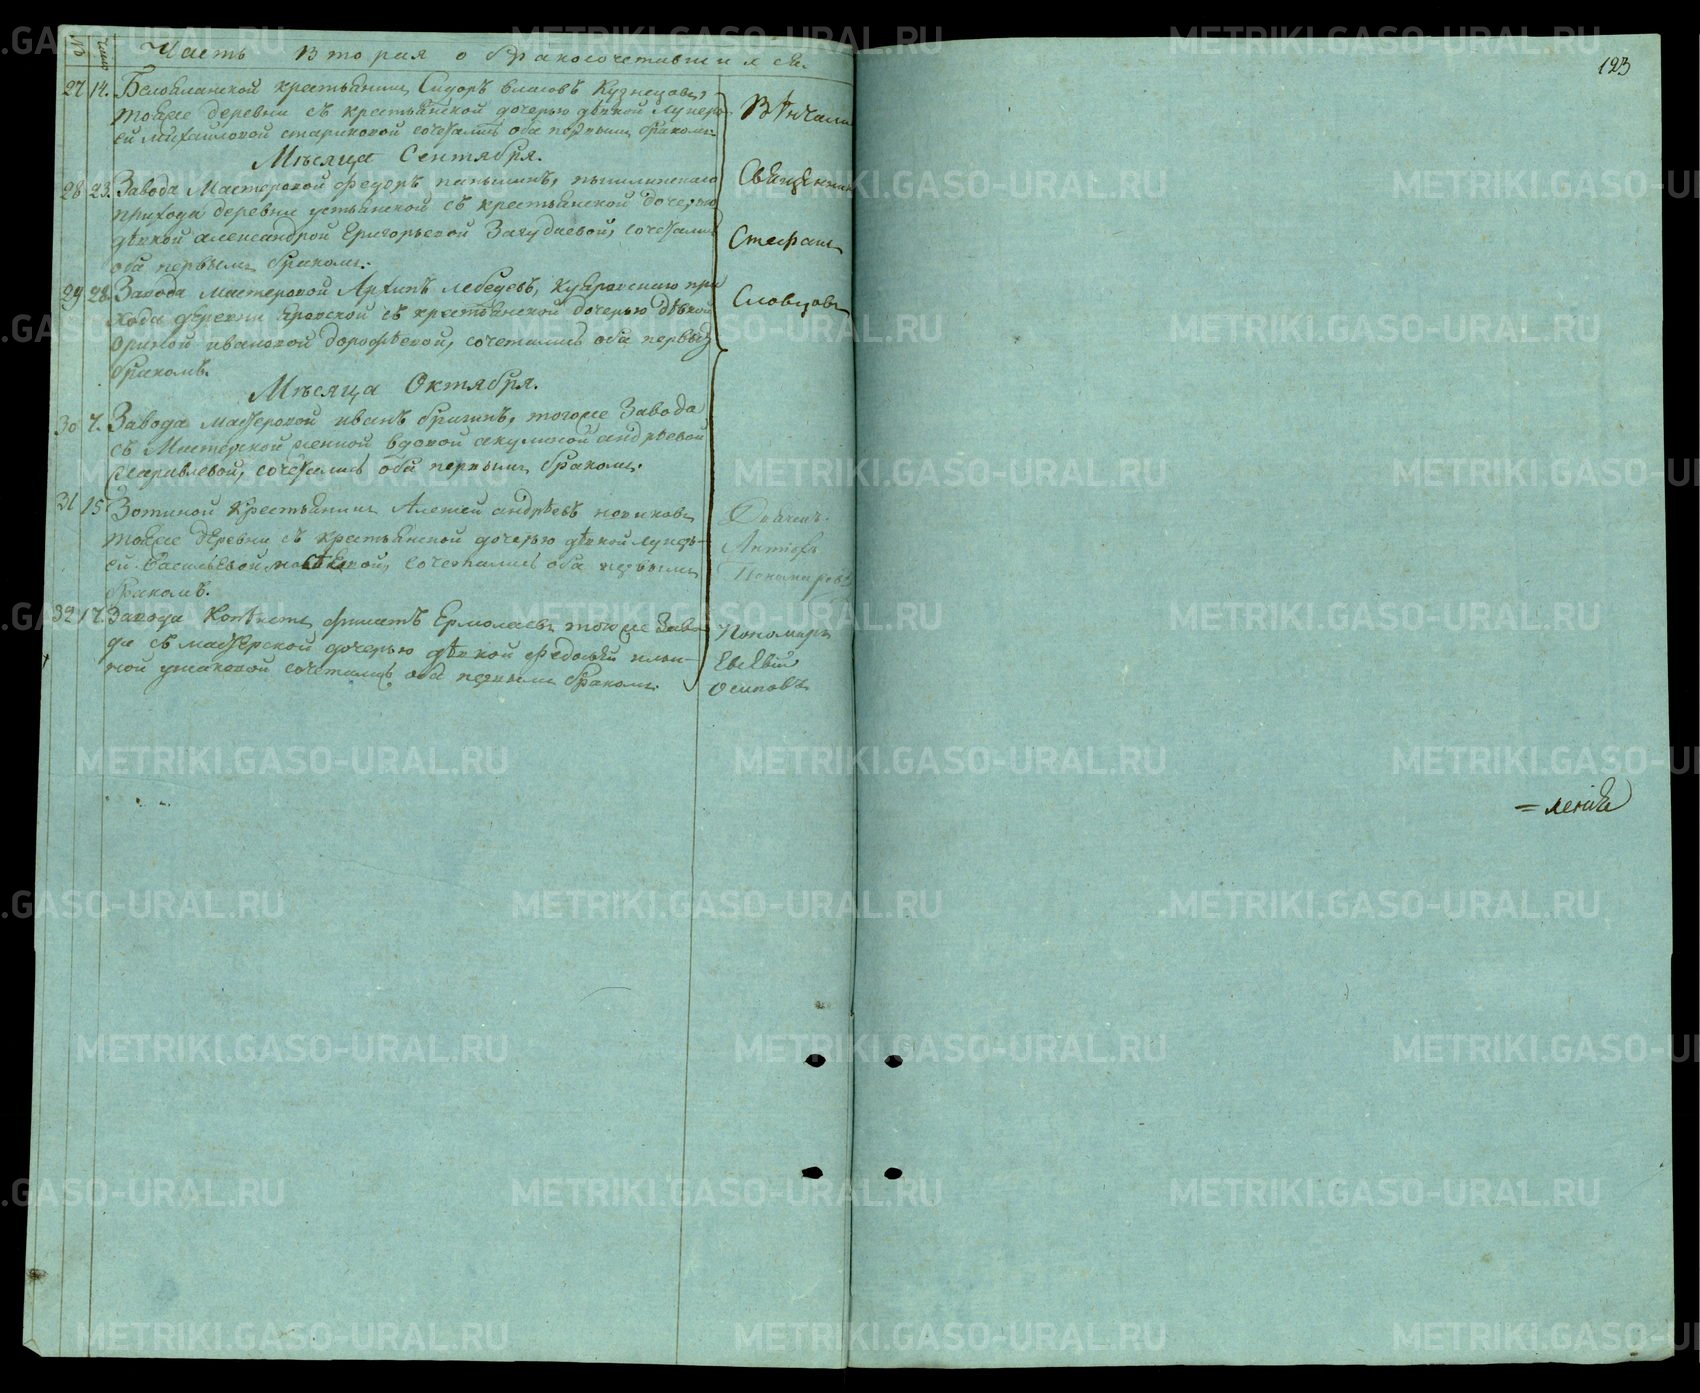 № Число Часть Вторая о бракосочетавшихся.
27 14. Белоеланской крестьянинъ Сидоръ власовъ Кузнецовъ,
тояже деревни съ крестьянской дочерью дѣвкой Лукерь-
ей михайловой стариковой сочетались оба первымъ бракомъ.
Мѣсяца Сентября.
28 23. Завода Мастеровой Федоръ паньшинъ, пышминскаго
прихода деревни устьянской съ крестьянской дочерью
дѣвкой александрой Григорьевой Загудаевой, сочетались
оба первымъ бракомъ.
29 28. Завода мастеровой Архипъ лебедевъ, куяровскаго при
хода деревни яровской съ крестьянской дочерью дѣвкой
ориной ивановой дорофѣевой, сочетались оба первымъ
бракомъ.
Мѣсяца Октября.
30 7. Завода мастеровой иванъ брагинъ, тогоже Завода
съ Мастерской женкой вдовой акулиной андрѣевой
журавлевой, сочетались оба первымъ бракомъ.
31 15 Зотиной крестьянинъ Алексей андрѣевъ новиковъ
тояже деревни съ крестьянской дочерью дѣвкой лукерь-
ей васильевой, сочетались оба первымъ
бракомъ.
32 17. Завода филатъ Ермолаевъ тогоже Заво-
да съ мастерской дочерью дѣвкой федосьей ильи-
ной ушаковой сочетались оба первымъ бракомъ.
Вѣнчали
Священникъ
Стефанъ
Словцовъ
Дьячекъ
Антіофъ
Пономаревъ
Пономарь
Евсевій
Осиповъ
123
= леніе
METRIKI.GASO-URAL.RU